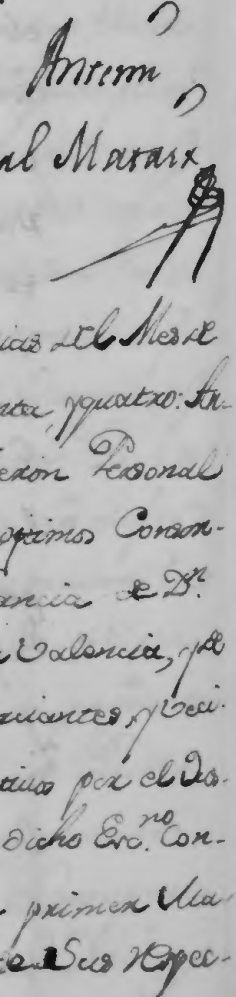 Antemi
al Mataix
icias del Mes de
nta, y quatro: An-
eron Personal
ptimos Conson-
ancia de Dn.
Valencia, y de
ciantes, y Veci-
por el Do-
dicho Esc.no Con-
primer Ma
Sus respec-